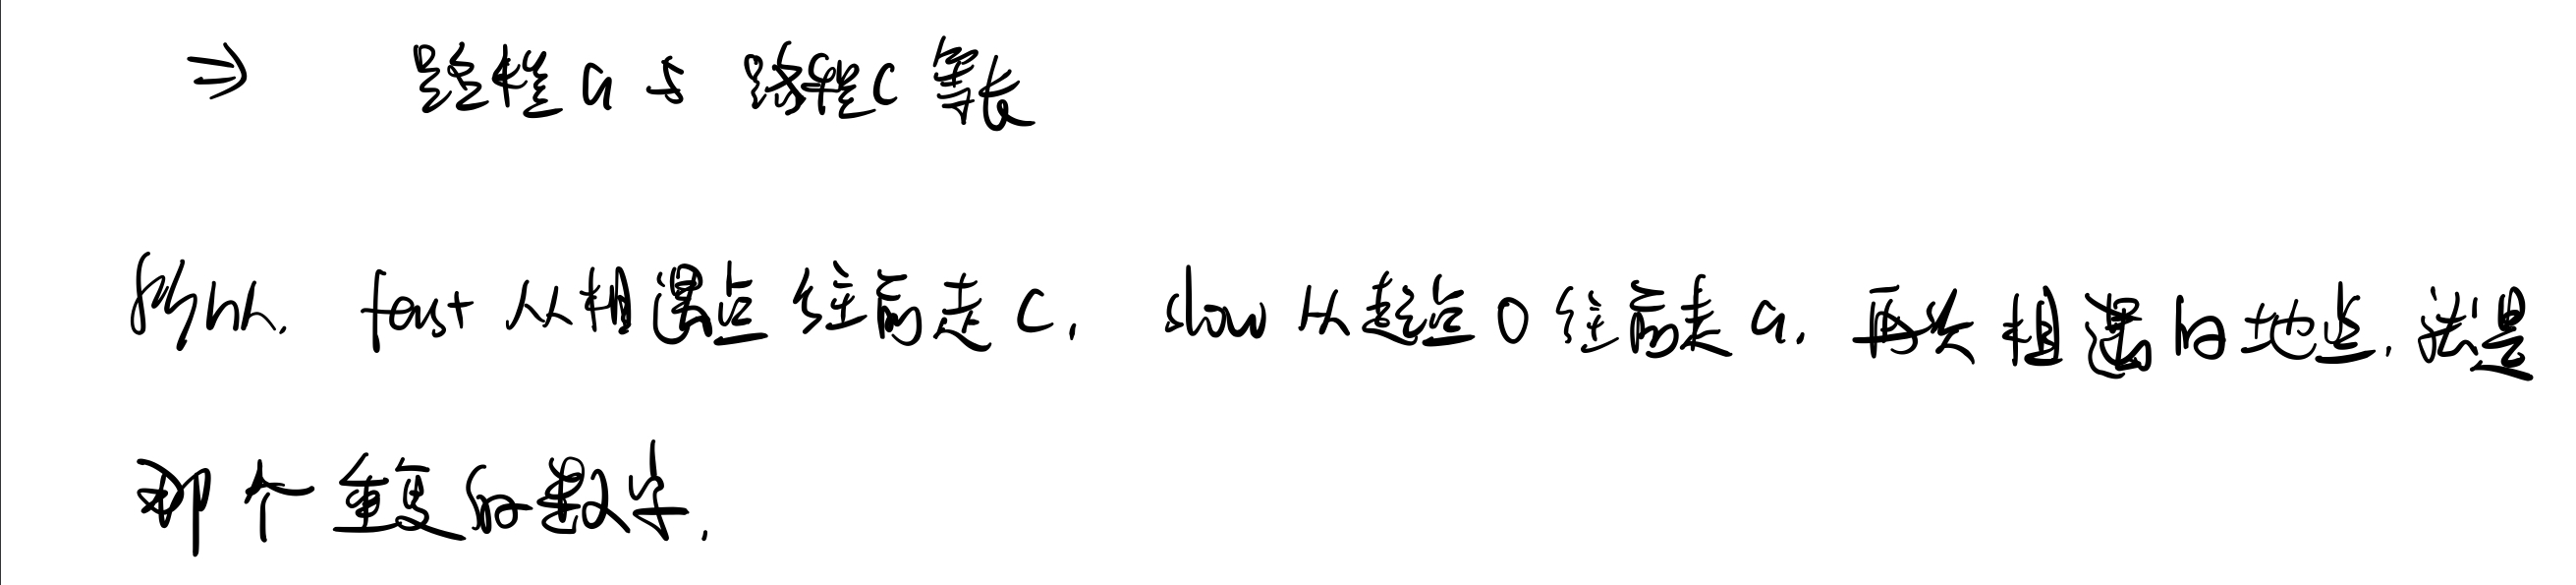 ⇒ 路程a与路程c等长
所以, fast从相遇点往前走c, slow从起点0往前走a, 再次相遇的地点, 就是
那个重复的数字.